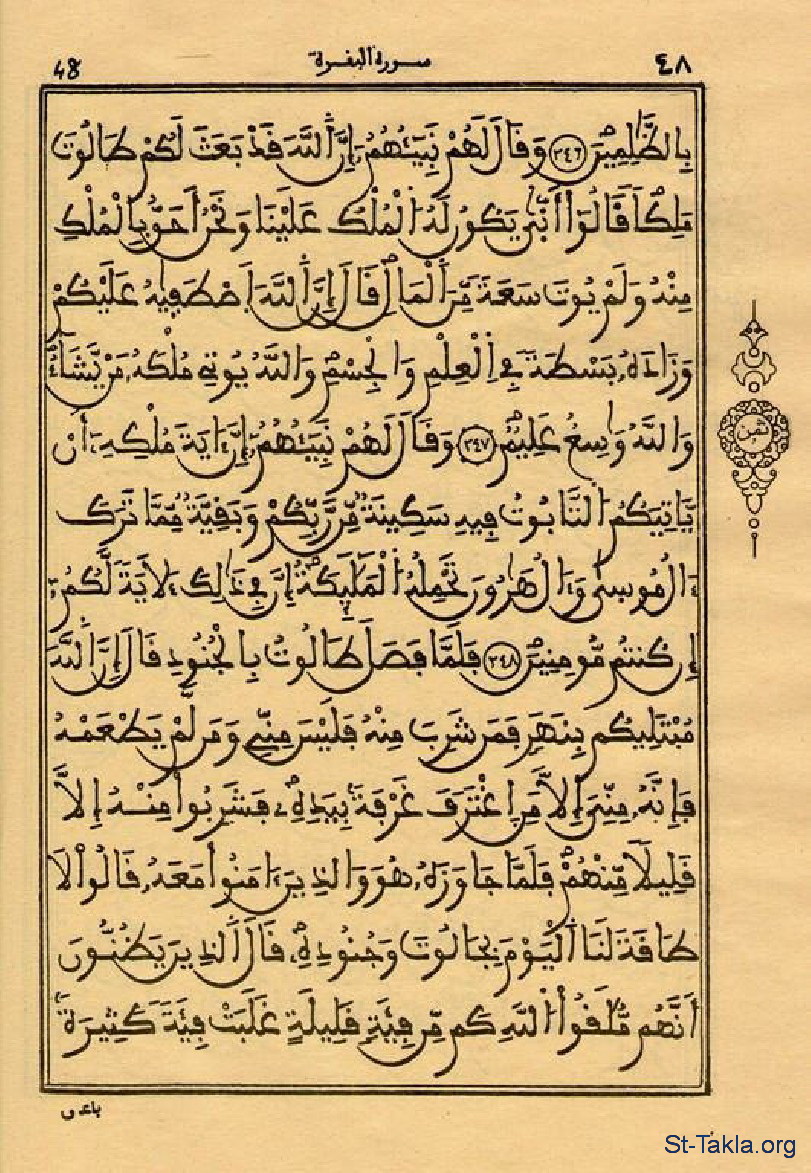 48 سورة البقرة ٤٨
بِالظَّٰلِمِينَ ٢٤٦ وَقَالَ لَهُمْ نَبِيٓـُٔهُمُۥٓ إِنَّ اَللَّهَ قَدْ بَعَثَ لَكُمْ طَالُوتَ
مَلِكاً قَالُوٓاْ أَنّٰي يَكُونُ لَهُ اُلْمُلْكُ عَلَيْنَا وَنَحْنُ أَحَقُّ بِالْمُلْكِ
مِنْهُ وَلَمْ يُوتَ سَعَةً مِّنَ اَلْمَالِ قَالَ إِنَّ اَللَّهَ اَصْطَفٰيهُ عَلَيْكُمْ
وَزَادَهُۥ بَسْطَةً فِي اِلْعِلْمِ وَالْجِسْمِ وَاللَّهُ يُوتِي مُلْكَهُۥ مَنْ يَّشَآءُ
وَاللَّهُ وَٰسِعٌ عَلِيمٌ ٢٤٧ وَقَالَ لَهُمْ نَبِيٓـُٔهُمُۥٓ إِنَّ ءَايَةَ مُلْكِهِۦٓ أَنْ
يَّاتِيَكُمُ اُلتَّابُوتُ فِيهِ سَكِينَةٌ مِّن رَّبِّكُمْ وَبَقِيَّةٌ مِّمَّا تَرَكَ
ءَالُ مُوسٰي وَءَالُ هَٰرُونَ تَحْمِلُهُ اُلْمَلَٰٓئِكَةُ إِنَّ فِي ذَٰلِكَ لَأٓيَةً لَّكُمُۥٓ
إِن كُنتُم مُّومِنِينَ ٢٤٨ فَلَمَّا فَصَلَ طَالُوتُ بِالْجُنُودِ قَالَ إِنَّ اَللَّهَ
مُبْتَلِيكُم بِنَهَرٍ فَمَن شَرِبَ مِنْهُ فَلَيْسَ مِنِّي وَمَن لَّمْ يَطْعَمْهُ
فَإِنَّهُۥ مِنِّيَ إِلَّا مَنِ اِغْتَرَفَ غَرْفَةً بِيَدِهِۦ فَشَرِبُواْ مِنْهُ إِلَّا
قَلِيلًا مِّنْهُمْ فَلَمَّا جَاوَزَهُۥ هُوَ وَالذِينَ ءَامَنُواْ مَعَهُۥ قَالُواْ لَا
طَاقَةَ لَنَا اَلْيَوْمَ بِجَالُوتَ وَجُنُودِهِۦ قَالَ اَلذِينَ يَظُنُّونَ
أَنَّهُم مُّلَٰقُواْ اُللَّهِ كَم مِّن فِئَةٍ قَلِيلَةٍ غَلَبَتْ فِئَةً كَثِيرَةً
ثمن
بإذن
St-Takla.org